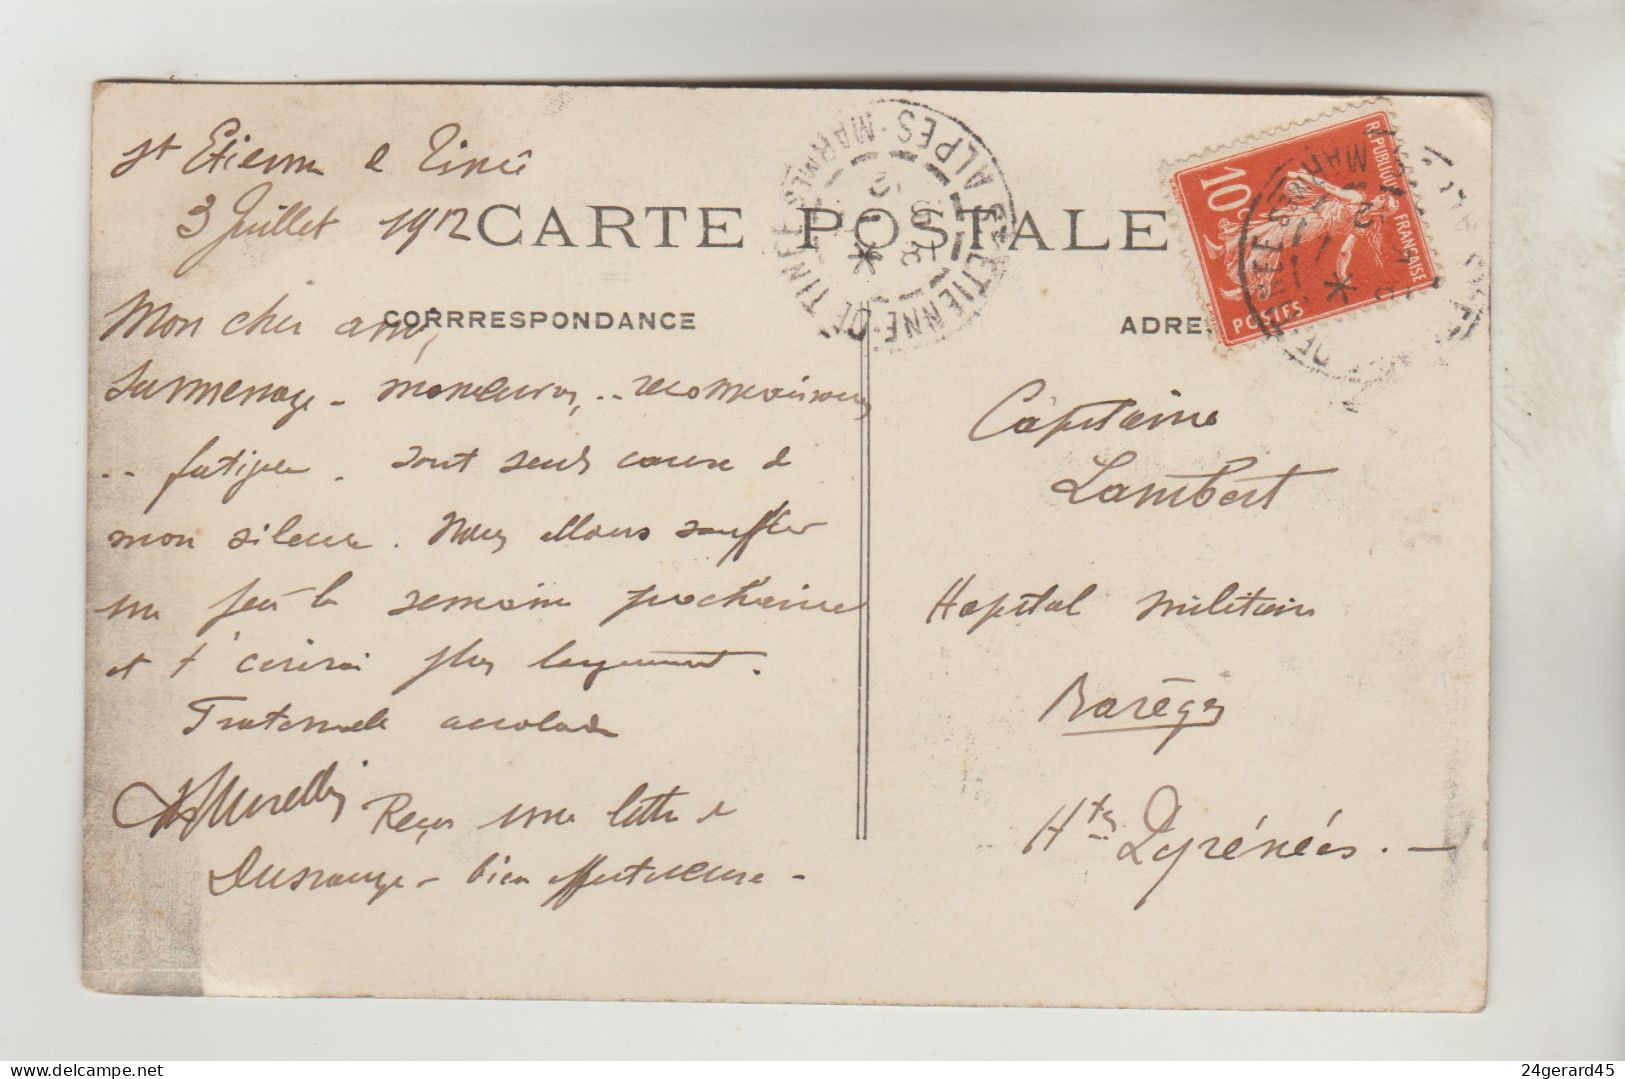 St Etienne de Tinée
3 Juillet 1912
CARTE POSTALE
CORRRESPONDANCE
Mon cher ami,
Surmenage - manoeuvres, .. reconnaissances
.. fatigues . sont seuls cause de
mon silence . Nous allons souffler
un peu la semaine prochaine
et t'écrirai plus longuement .
Fraternelle accolade
Reçu une lettre de
bien affectueuse -
ST ETIENNE-DE-TINÉE
ALPES-MARMES
ADRE
REPUBLIQUE FRANÇAISE
10c
POSTES
Capitaine
Lambert
Hopital militaire
Barèges
Htes Pyrénées . -
24gerard45